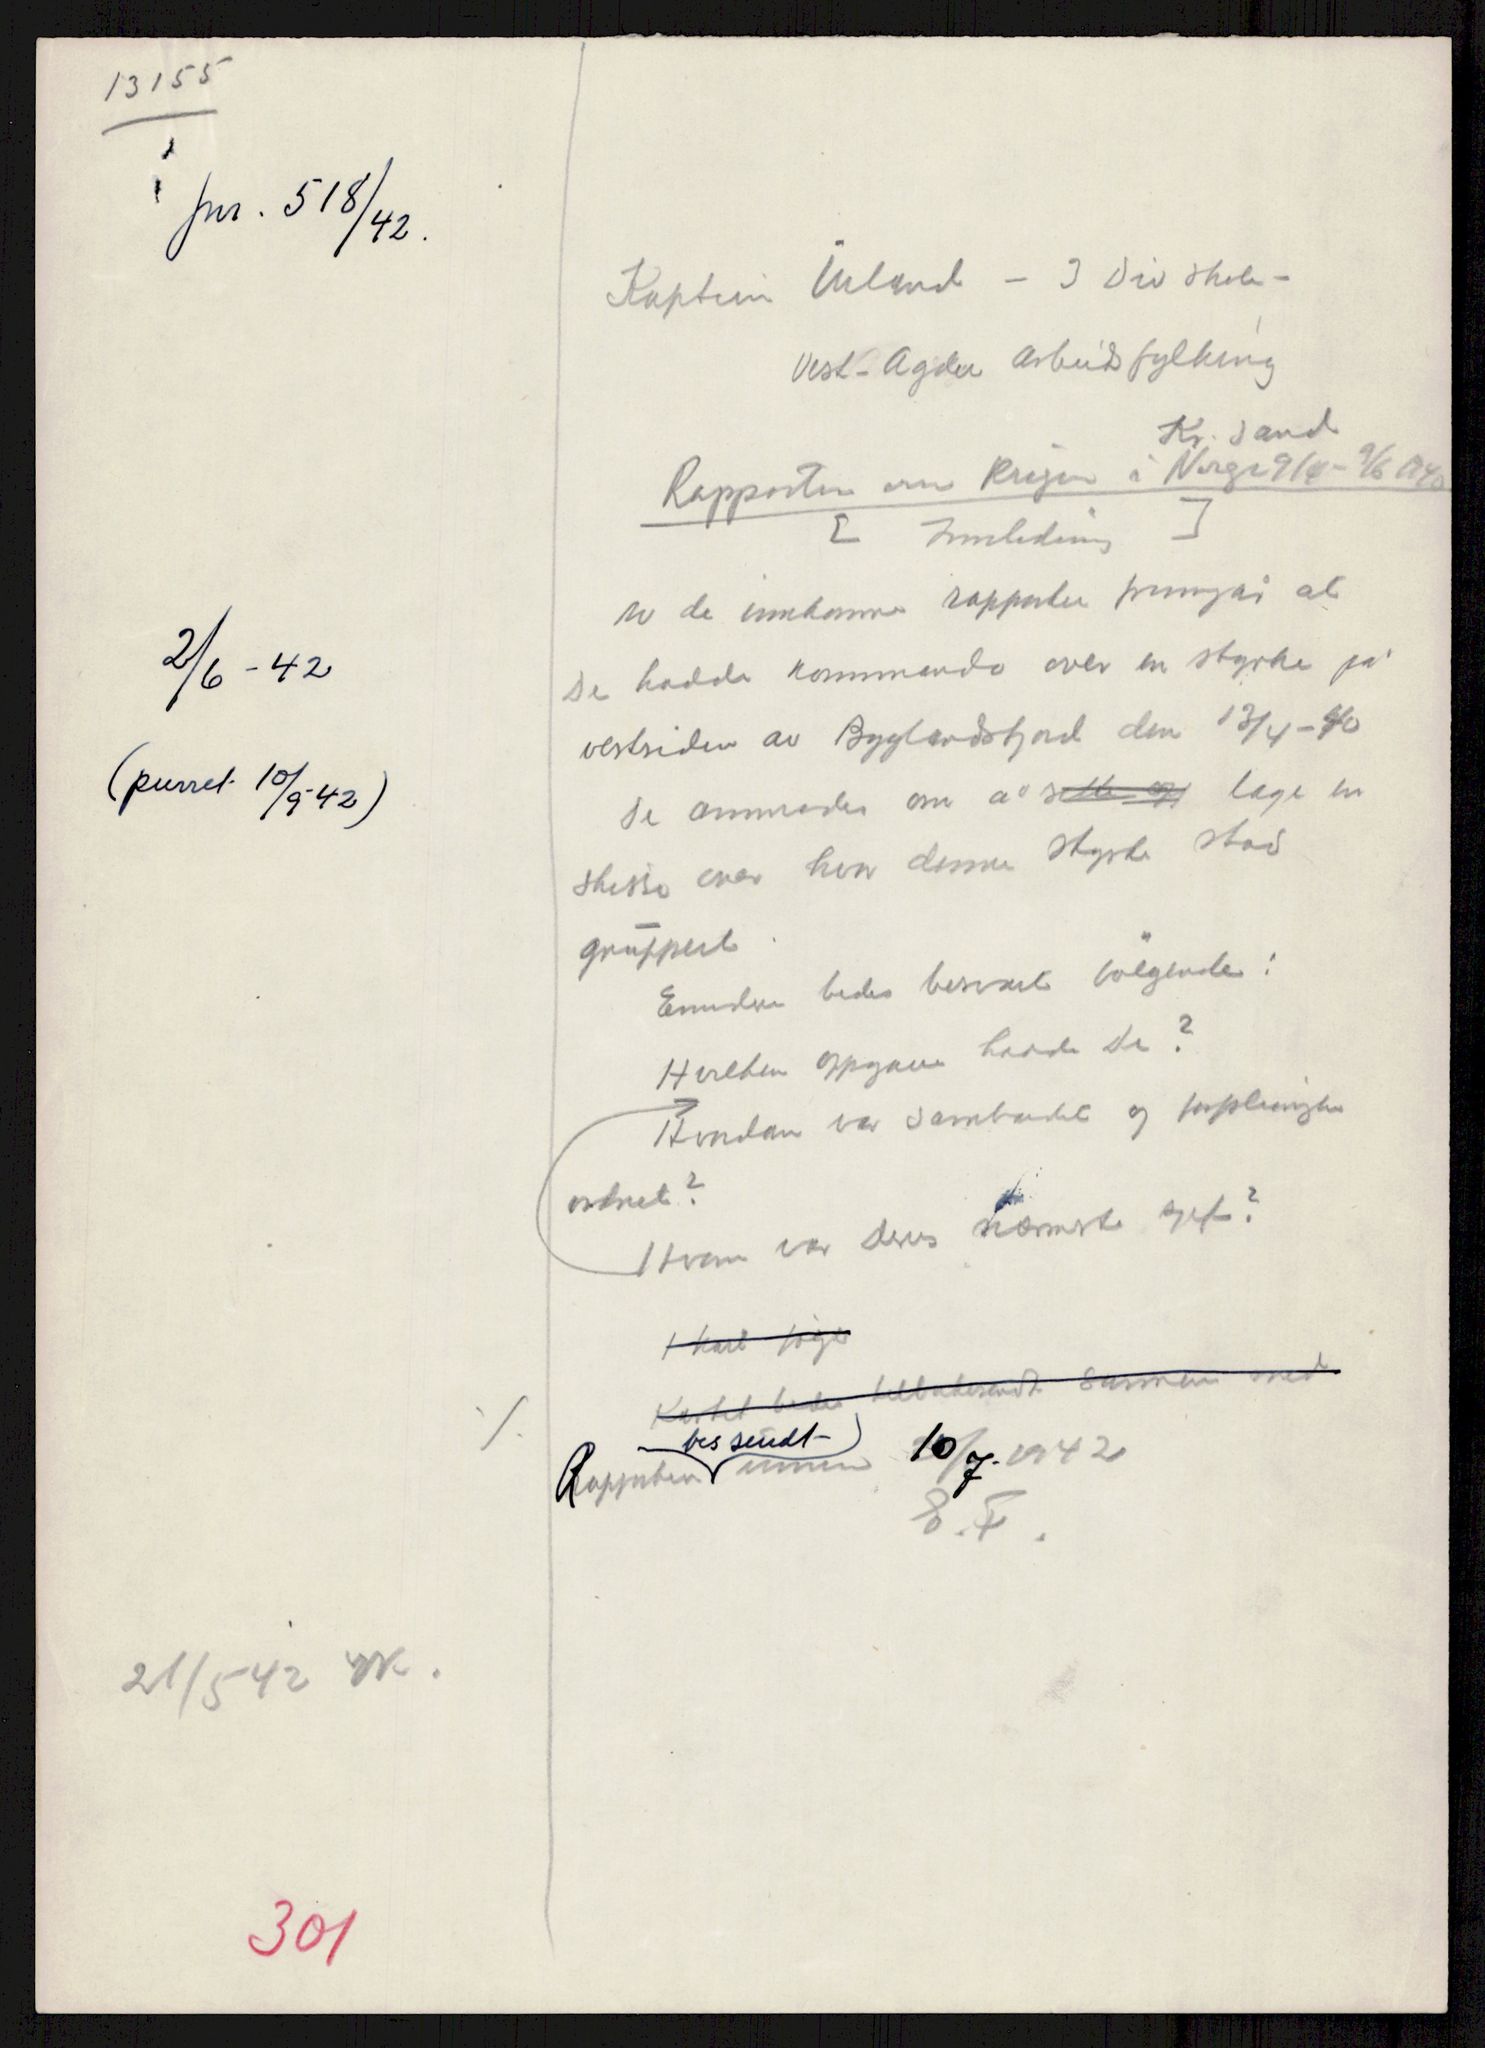 13155
jnr. 518/42.
Kaptein Ueland - 3 Div skole -
Vest-Agder Arbeidsfylking
Kr. sand
Rapporten om krigen i Norge 9/4 - 9/6 1940
[ Innledning ]
Av de innkomne rapporter fremgår at
2/6 - 42
De hadde kommando over en styrke på
vestsiden av Byglandsfjord den 13/4 - 40
(purret 10/9 42)
De anmodes om å sette opp lage en
skisse over hvor denne styrke stod
gruppert.
Enndvidere bedes besvart følgende:
Hvilken oppgave hadde De?
Hvordan var sambandet og forpleiningen
ordnet?
Hvem var Deres nærmeste sjef?
1 kart følger
Kartet bedes tilbakesendt sammen med
·/.
bes sendt
Rapporten innen 10/7. 1942
E. F.
21/5 42
301